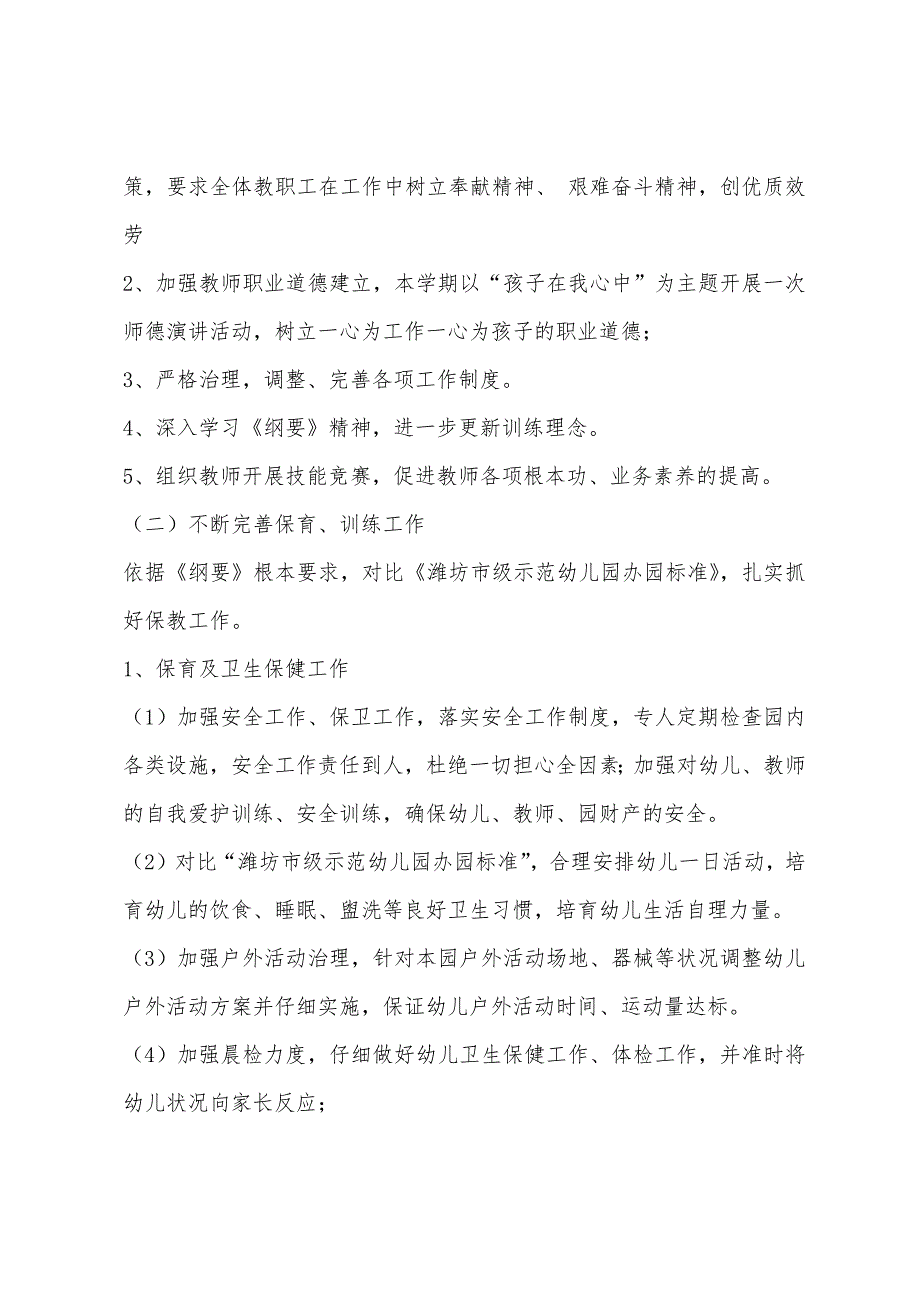 策，要求全体教职工在工作中树立奉献精神、 艰难奋斗精神，创优质效
劳
2、加强教师职业道德建立，本学期以“孩子在我心中”为主题开展一次
师德演讲活动，树立一心为工作一心为孩子的职业道德；
3、严格治理，调整、完善各项工作制度。
4、深入学习《纲要》精神，进一步更新训练理念。
5、组织教师开展技能竞赛，促进教师各项根本功、业务素养的提高。
（二）不断完善保育、训练工作
依据《纲要》根本要求，对比《潍坊市级示范幼儿园办园标准》，扎实抓
好保教工作。
1、保育及卫生保健工作
（1）加强安全工作、保卫工作，落实安全工作制度，专人定期检查园内
各类设施，安全工作责任到人，杜绝一切担心全因素；加强对幼儿、教师
的自我爱护训练、安全训练，确保幼儿、教师、园财产的安全。
（2）对比“潍坊市级示范幼儿园办园标准”，合理安排幼儿一日活动，培
育幼儿的饮食、睡眠、盥洗等良好卫生习惯，培育幼儿生活自理力量。
（3）加强户外活动治理，针对本园户外活动场地、器械等状况调整幼儿
户外活动方案并仔细实施，保证幼儿户外活动时间、运动量达标。
（4）加强晨检力度，仔细做好幼儿卫生保健工作、体检工作，并准时将
幼儿状况向家长反应；